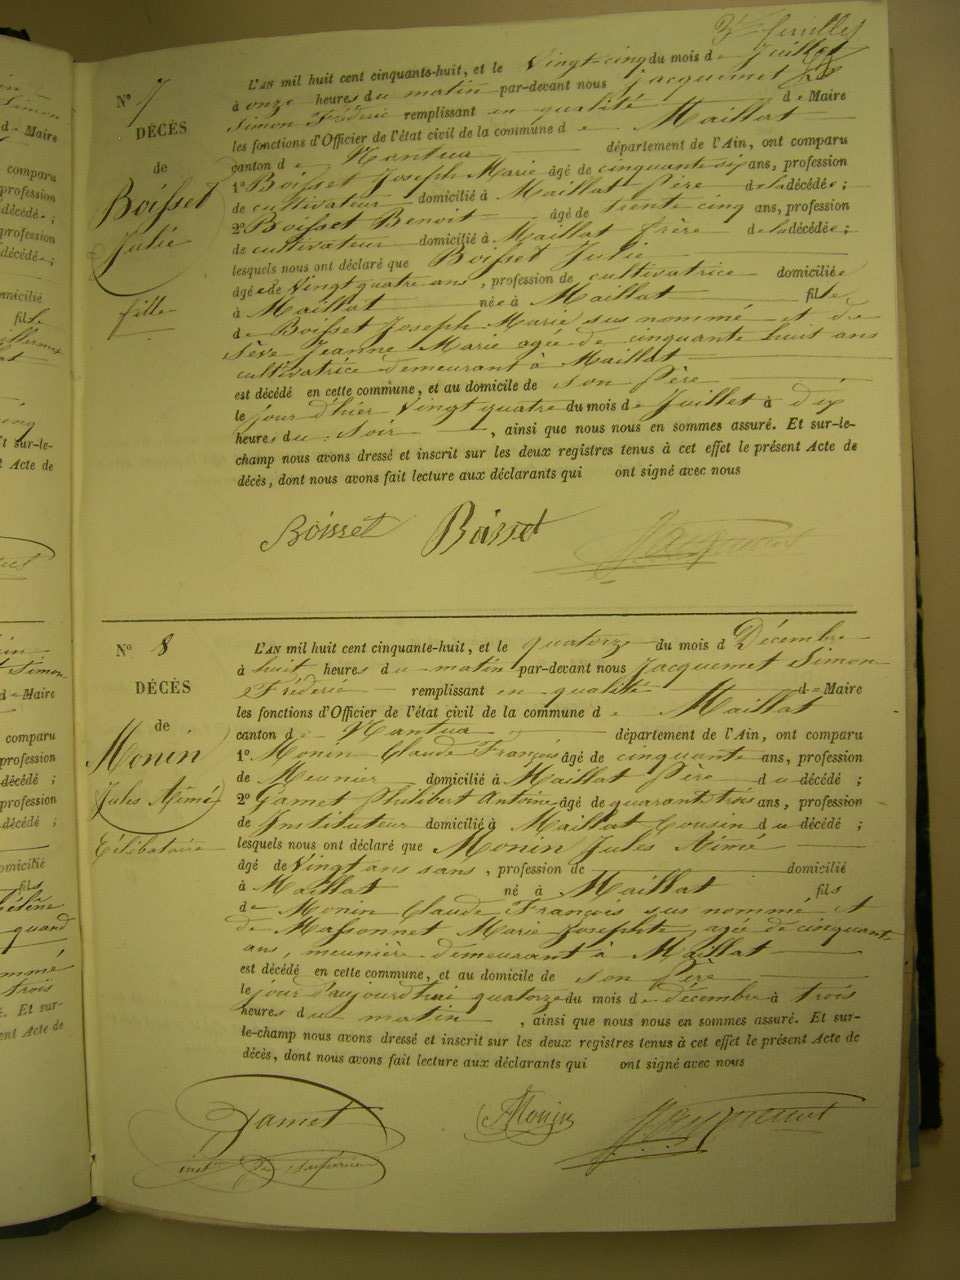 3e feuillet
N° 7
DÉCÈS
de
Boisset
Julie
fille
L'AN mil huit cent cinquante-huit, et le Vingt-cinq du mois de Juillet
à onze heures du matin par-devant nous Jacquemet
Simon Fréderic remplissant en qualité de Maire
les fonctions d'Officier de l'état civil de la commune de Maillat
canton de Nantua département de l'Ain, ont comparu
1° Boisset Joseph Marie âgé de cinquante six ans, profession
de cultivateur domicilié à Maillat Père de la décédée ;
2° Boisset Benoit âgé de trente cinq ans, profession
de cultivateur domicilié à Maillat frère de la décédée ;
lesquels nous ont déclaré que Boisset Julie
âgée de Vingt quatre ans, profession de cultivatrice domiciliée
à Maillat née à Maillat fille
de Boisset Joseph Marie sus nommé et de
Sève Jeanne Marie agée de cinquante huit ans
cultivatrice demeurant à Maillat
est décédé en cette commune, et au domicile de son Père
le jour d'hier Vingt quatre du mois de Juillet à dix
heures du soir , ainsi que nous nous en sommes assuré. Et sur-le-
champ nous avons dressé et inscrit sur les deux registres tenus à cet effet le présent Acte de
décès, dont nous avons fait lecture aux déclarants qui ont signé avec nous
Boisset Boisset Jacquemet
N° 8
DÉCÈS
de
Monin
Jules Aimé
Célibataire
L'AN mil huit cent cinquante-huit, et le quatorze du mois d Décembre
à huit heures du matin par-devant nous Jacquemet Simon
Fréderic remplissant en qualité de Maire
les fonctions d'Officier de l'état civil de la commune de Maillat
canton de Nantua département de l'Ain, ont comparu
1° Monin Claude François âgé de cinquante ans, profession
de Meunier domicilié à Maillat Père du décédé ;
2° Gamet Philibert Antoine âgé de quarante trois ans, profession
de Instituteur domicilié à Maillat Cousin du décédé ;
lesquels nous ont déclaré que Monin Jules Aimé
âgé de Vingt ans sans , profession de domicilié
à Maillat né à Maillat fils
de Monin Claude François sus nommé et
de Massonnet Marie Josephte, agée de cinquante
ans, meunière demeurant à Maillat
est décédé en cette commune, et au domicile de son Père
le jour d'aujourd'hui quatorze du mois de décembre à trois
heures du matin , ainsi que nous nous en sommes assuré. Et sur-
le-champ nous avons dressé et inscrit sur les deux registres tenus à cet effet le présent Acte de
décès, dont nous avons fait lecture aux déclarants qui ont signé avec nous
Gamet Monin Jacquemet